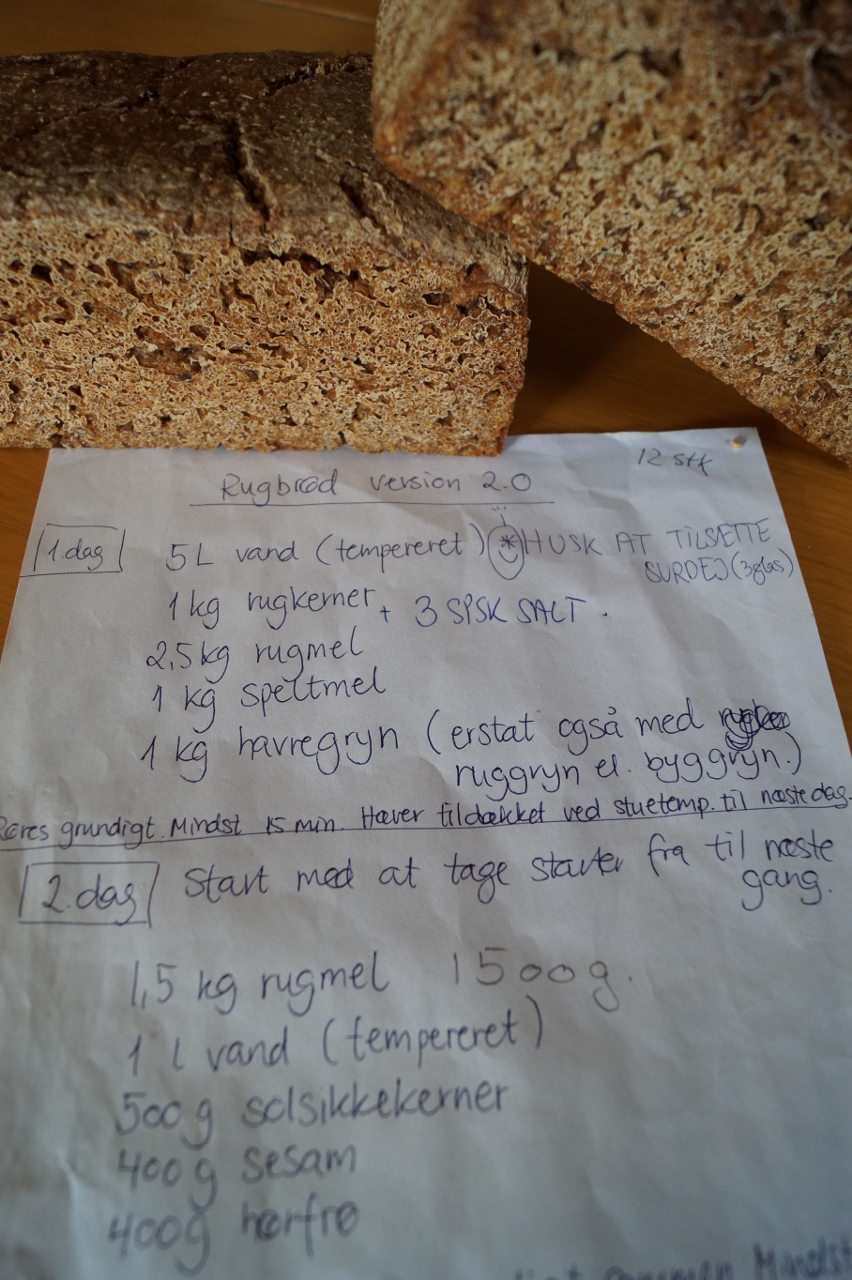 12 stk
Rugbrød version 2.0
1. dag
5 L vand (tempereret) * HUSK AT TILSÆTTE
SURDEJ (3 glas)
1 kg rugkerner + 3 SPSK SALT.
2,5 kg rugmel
1 kg speltmel
1 kg havregryn (erstat også med
ruggryn el. byggryn.)
Røres grundigt. Mindst 15 min. Hæver tildækket ved stuetemp. til næste dag.
2. dag Start med at tage starter fra til næste
gang.
1,5 kg rugmel 1500g.
1 L vand (tempereret)
500g solsikkekerner
400g sesam
400g hørfrø
Mindst